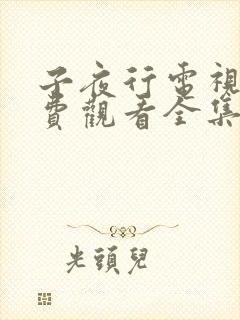 子夜行電視
費觀看全集
光頭兒